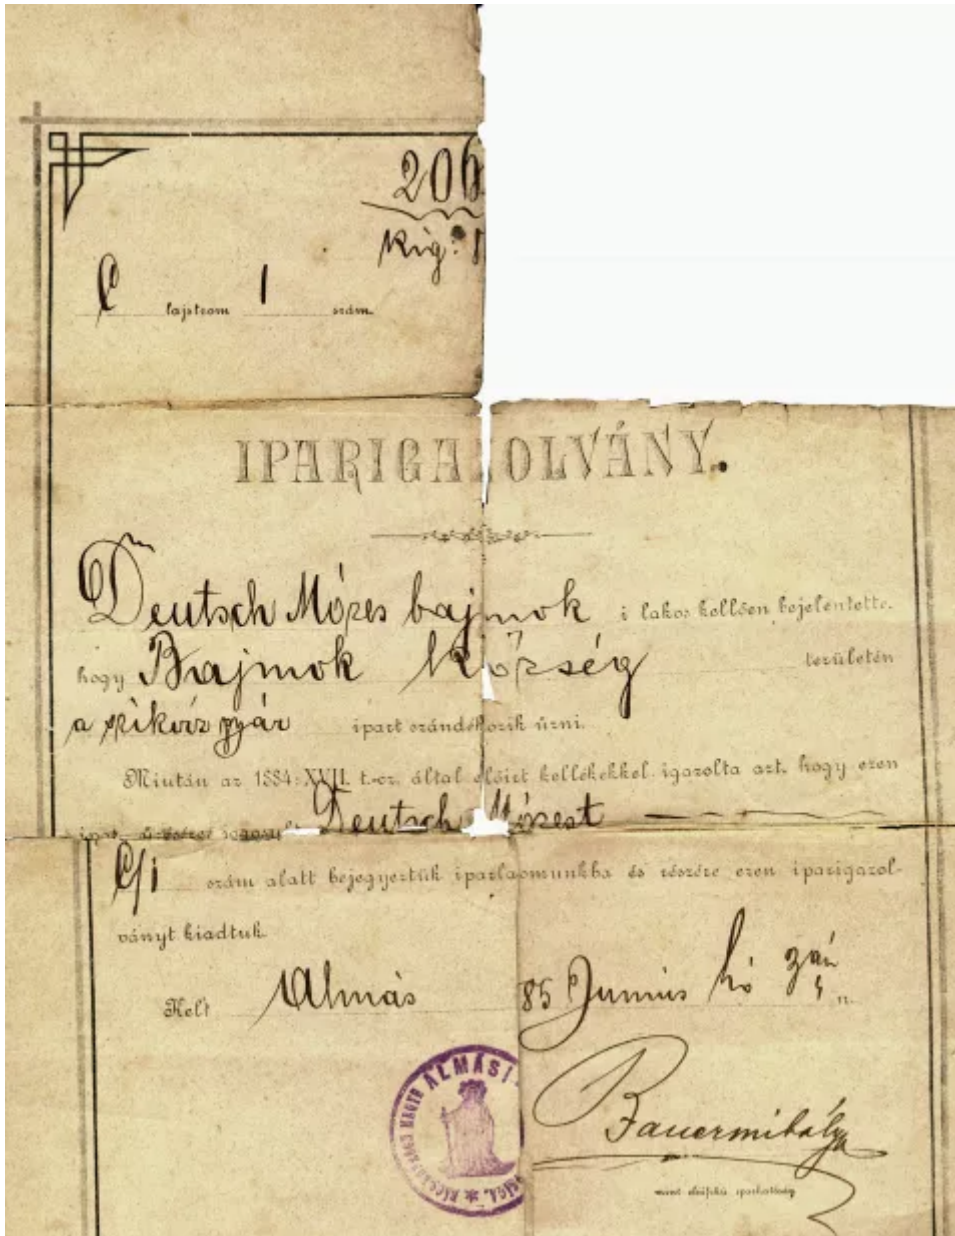 206
kig:
C lajstrom 1 szám.
IPARIGAZOLVÁNY.
Deutsch Mózes bajmok i lakos kellően bejelentette,
hogy Bajmok község területén
a szikvíz gyár ipart szándékozik űzni.
Miután az 1884: XVII. t.-cz. által előirt kellékekkel igazolta azt, hogy ezen
Deutsch Mózest
C/1 szám alatt bejegyeztük iparlajstromunkba és részére ezen iparigazol-
ványt kiadtuk.
Kelt Almás 85 Junius hó n.
ALMÁSI
Bauermihály
mint elsőfokú iparhatóság